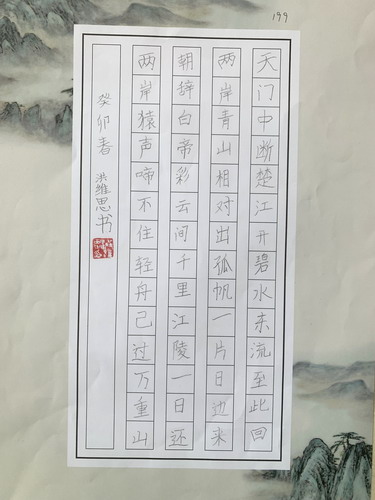 199
天门中断楚江开碧水东流至此回
两岸青山相对出孤帆一片日边来
朝辞白帝彩云间千里江陵一日还
两岸猿声啼不住轻舟已过万重山
癸卯春 洪维思书